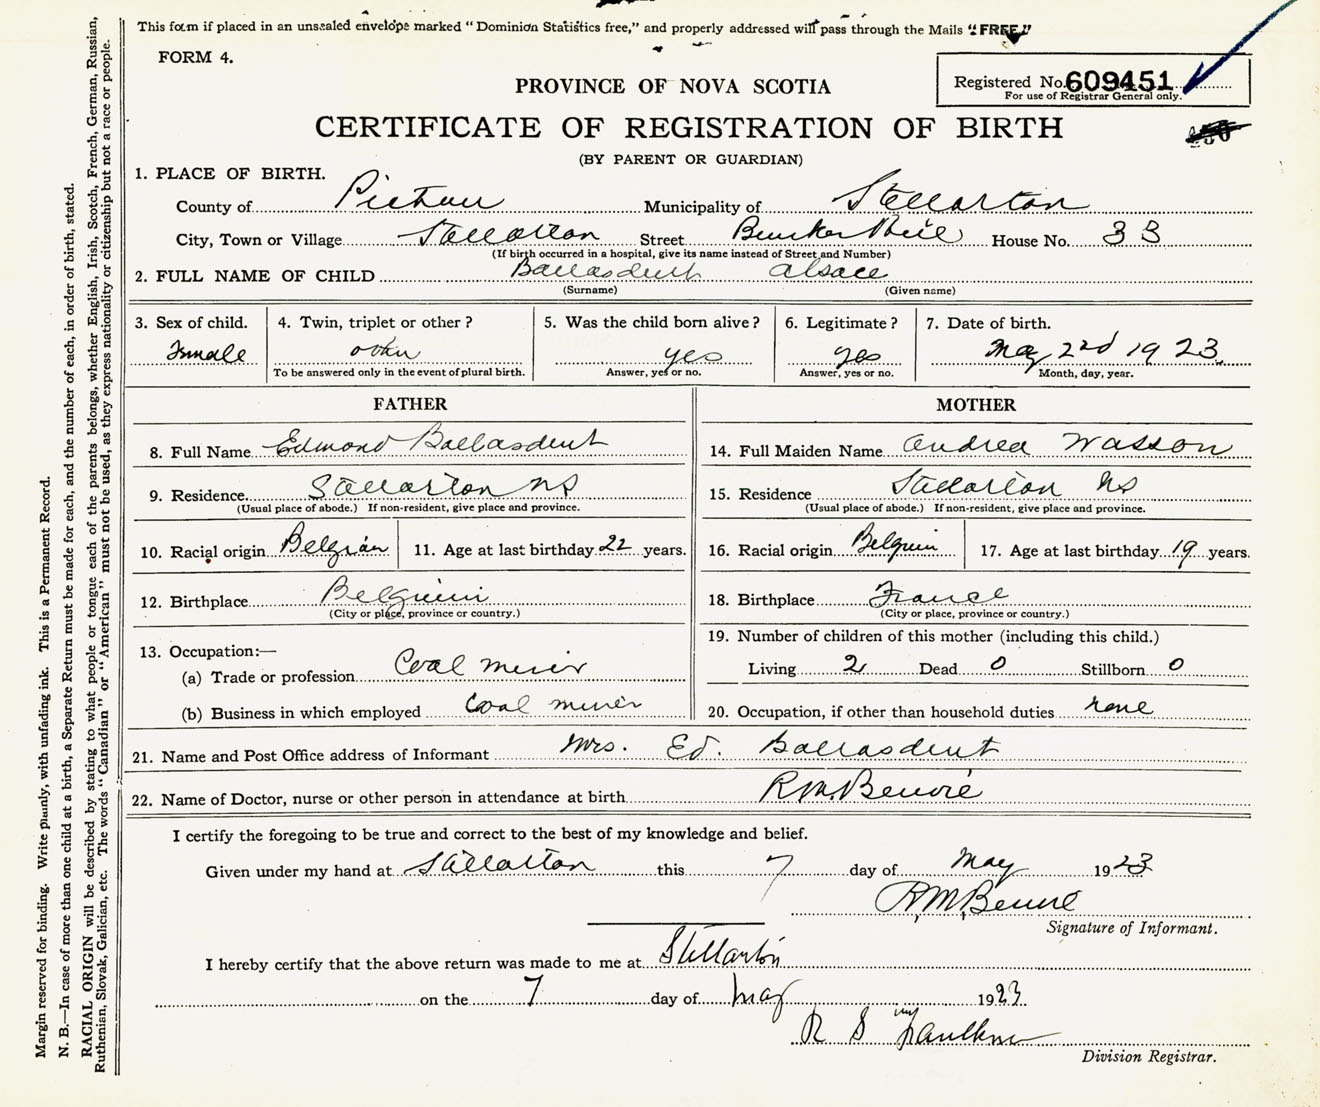 This form if placed in an unsealed envelope marked "Dominion Statistics free," and properly addressed will pass through the Mails "FREE."
FORM 4.
Registered No. 609451
For use of Registrar General only.
PROVINCE OF NOVA SCOTIA
CERTIFICATE OF REGISTRATION OF BIRTH
(BY PARENT OR GUARDIAN)
1. PLACE OF BIRTH.
County of Pictou Municipality of Stellarton
City, Town or Village Stellarton Street Bunker Hill House No. 33
(If birth occurred in a hospital, give its name instead of Street and Number)
2. FULL NAME OF CHILD Ballasdent Alsace
(Surname) (Given name)
3. Sex of child. 4. Twin, triplet or other? 5. Was the child born alive? 6. Legitimate? 7. Date of birth.
Female other yes yes May 2nd 1923
To be answered only in the event of plural birth. Answer, yes or no. Answer, yes or no. Month, day, year.
FATHER MOTHER
8. Full Name Edmond Ballasdent 14. Full Maiden Name Andrea Wasson
9. Residence Stellarton NS 15. Residence Stellarton NS
(Usual place of abode.) If non-resident, give place and province. (Usual place of abode.) If non-resident, give place and province.
10. Racial origin Belgian 11. Age at last birthday 22 years. 16. Racial origin Belguin 17. Age at last birthday 19 years.
12. Birthplace Belguim 18. Birthplace France
(City or place, province or country.) (City or place, province or country.)
13. Occupation:— 19. Number of children of this mother (including this child.)
(a) Trade or profession Coal miner Living 2 Dead 0 Stillborn 0
(b) Business in which employed Coal miner 20. Occupation, if other than household duties none
21. Name and Post Office address of Informant Mrs. Ed. Ballasdent
22. Name of Doctor, nurse or other person in attendance at birth R.M. Benvie
I certify the foregoing to be true and correct to the best of my knowledge and belief.
Given under my hand at Stellarton this 7 day of May 1923
R.M. Benvie
Signature of Informant.
I hereby certify that the above return was made to me at Stellarton
on the 7 day of May 1923
R S Faulkner
Division Registrar.
Margin reserved for binding. Write plainly, with unfading ink. This is a Permanent Record.
N. B.—In case of more than one child at a birth, a Separate Return must be made for each, and the number of each, in order of birth, stated.
RACIAL ORIGIN will be described by stating to what people or tongue each of the parents belongs, whether English, Irish, Scotch, French, German, Russian,
Ruthenian, Slovak, Galician, etc. The words "Canadian" or "American" must not be used, as they express nationality or citizenship but not a race or people.